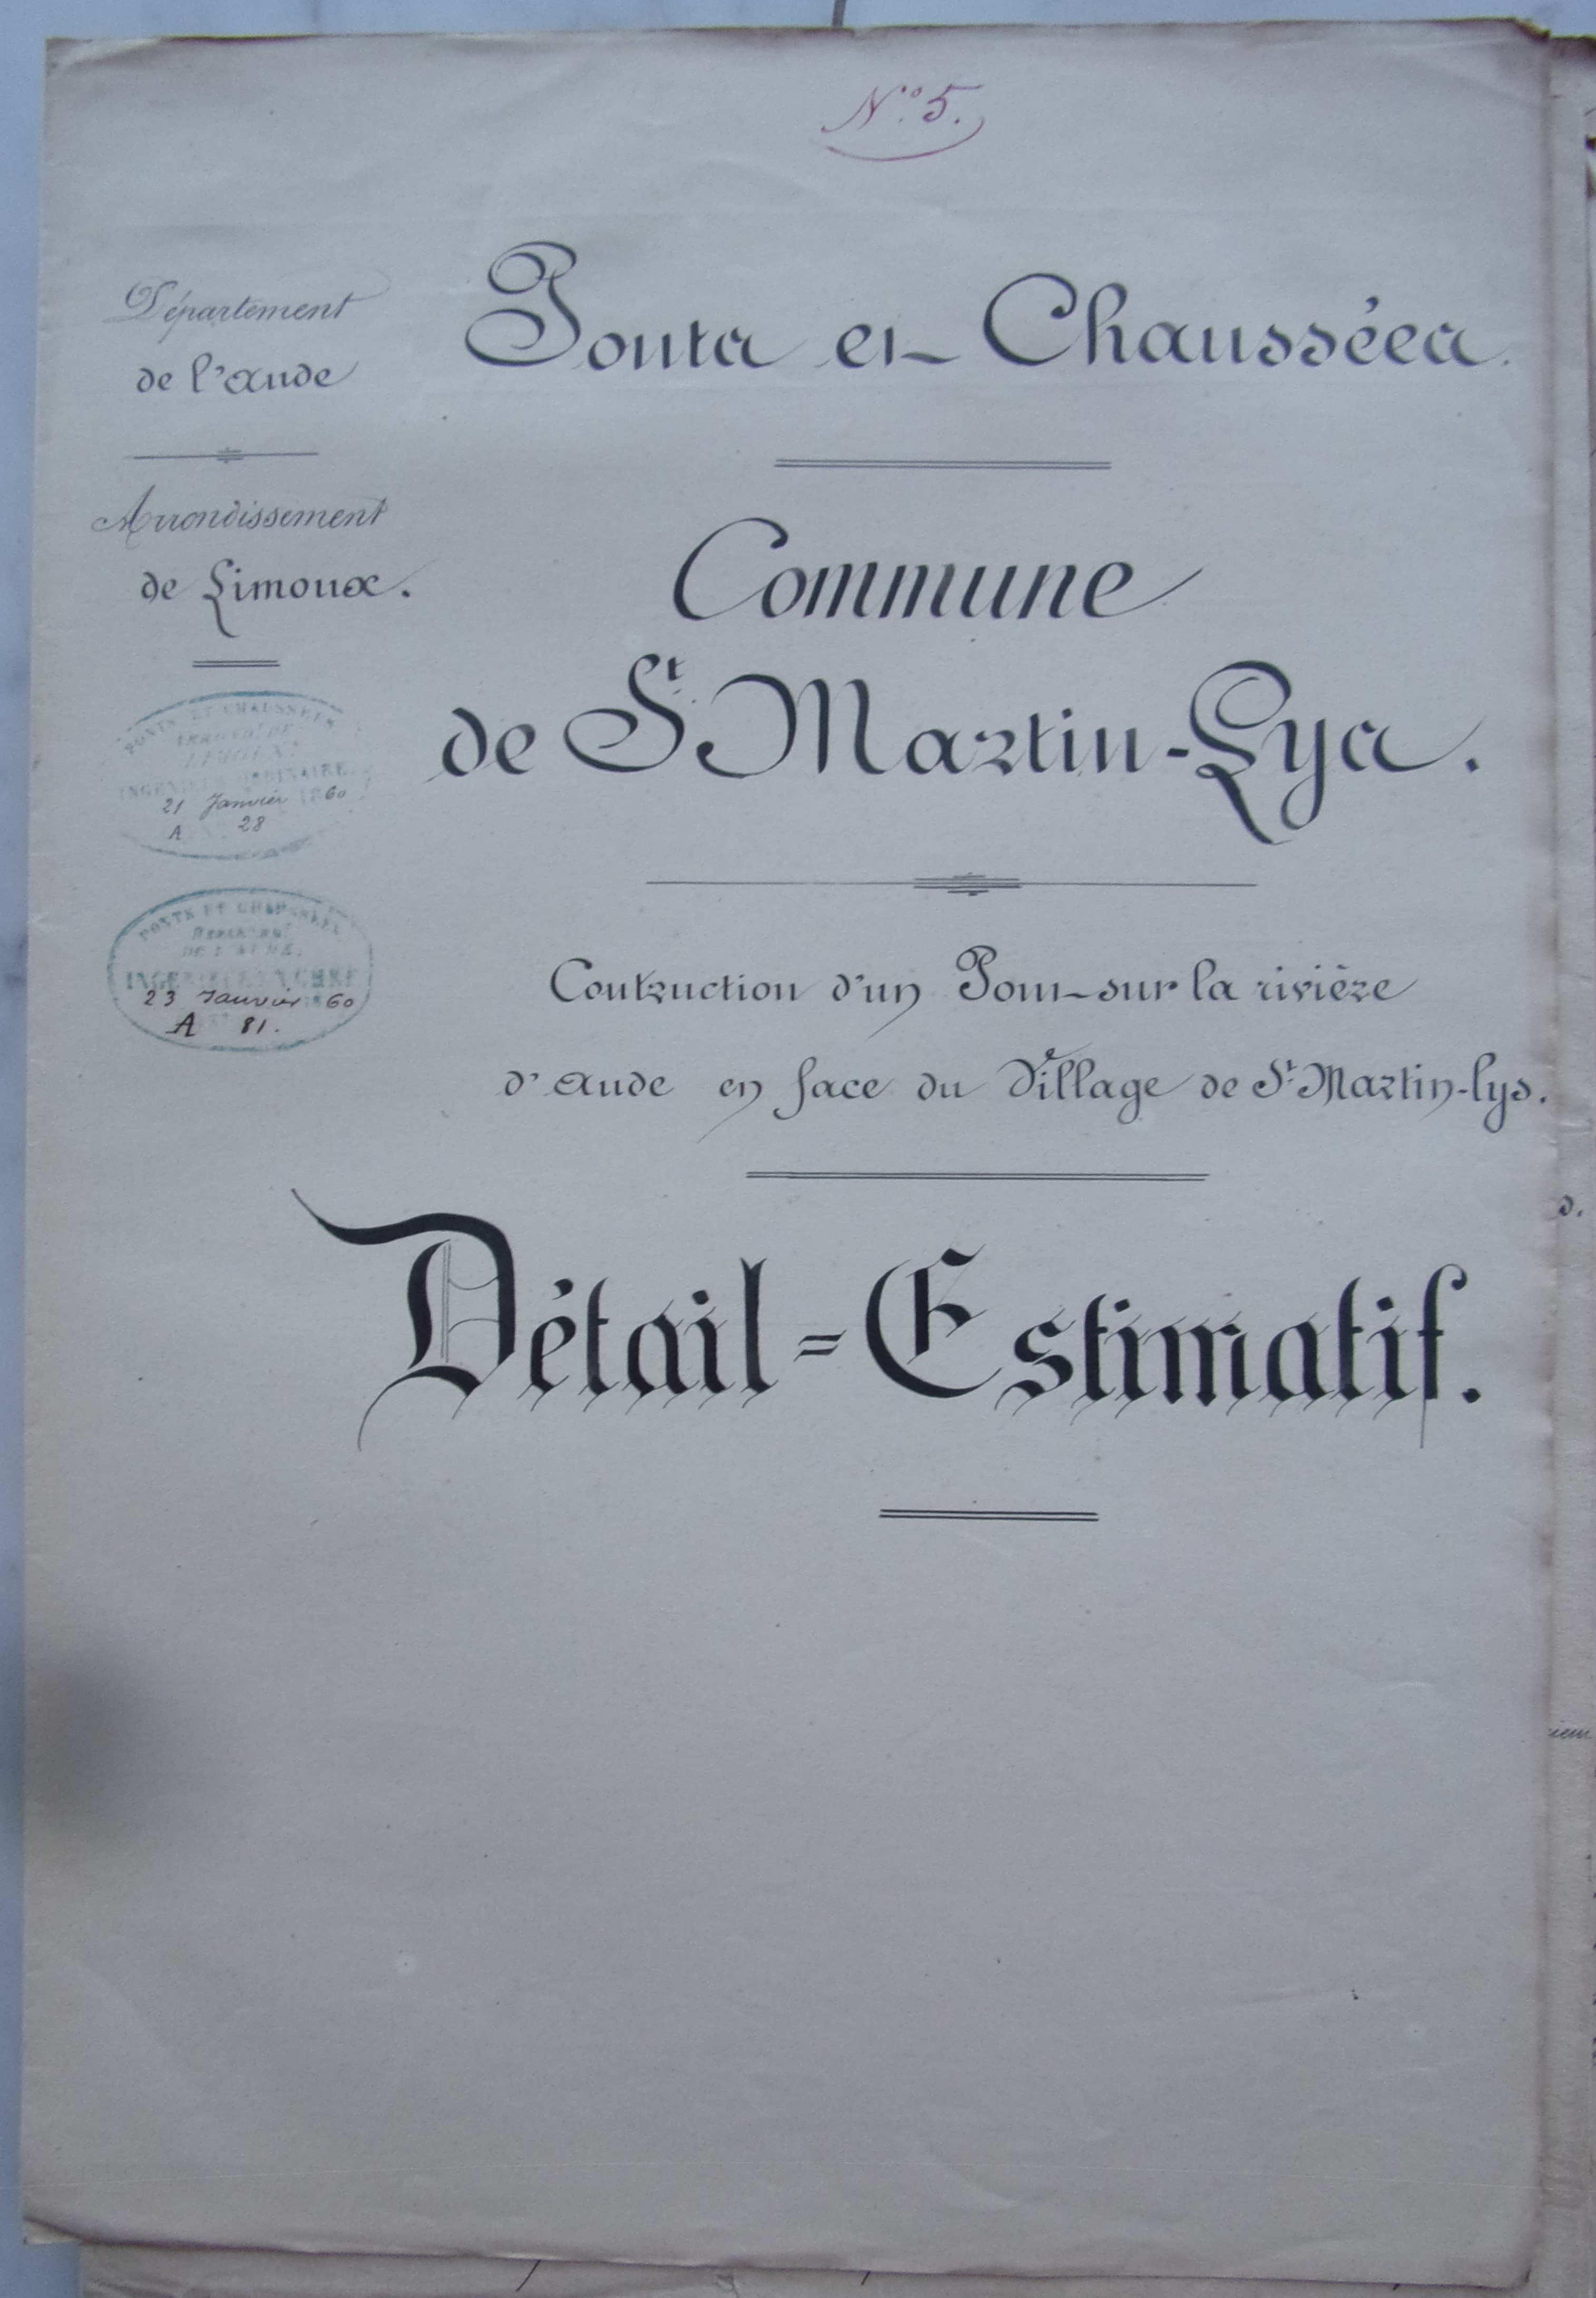 N.° 5.
Département
de l'Aude
Arrondissement
de Limoux.
PONTS ET CHAUSSÉES
INGÉNIEUR ORDINAIRE
21 Janvier 1860
A 28
PONTS ET CHAUSSÉES
DE L'AUDE
INGÉNIEUR EN CHEF
23 Janvier 60
A 81.
Ponts et Chaussées.
Commune
de St Martin-Lys.
Contruction d'un Pont sur la rivière
d'Aude en face du Village de St Martin-lys.
Détail = Estimatif.